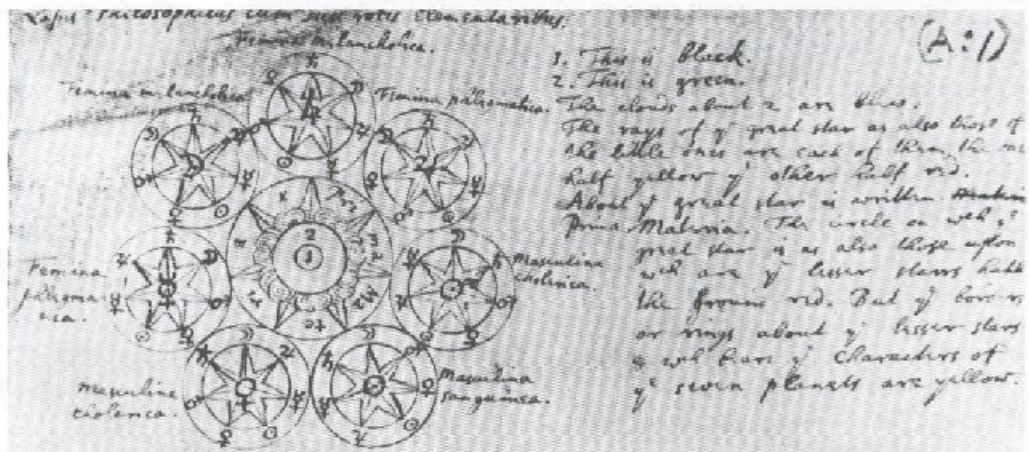 Lapis Philosophicus cum suis rotis elementaribus.
Femina melancholica.
Femina melancholica
Femina phlegmatica.
Femina
phlegma
tica.
Masculina
cholerica.
Masculine
cholerica.
Masculina
sanguinea.
2
1
(A:1)
1. This is black.
2. This is green.
The clouds about 2 are blue.
The rays of yᵉ great star as also those of
the little ones are each of them the one
half yellow yᵉ other half red.
About yᵉ great star is written
Prima Materia. The circle on wch yᵉ
great star is as also those upon
wch are yᵉ lesser starrs hath
the ground red. But yᵉ borders
or rings about yᵉ lesser stars
& wch bears yᵉ Characters of
yᵉ seven planets are yellow.